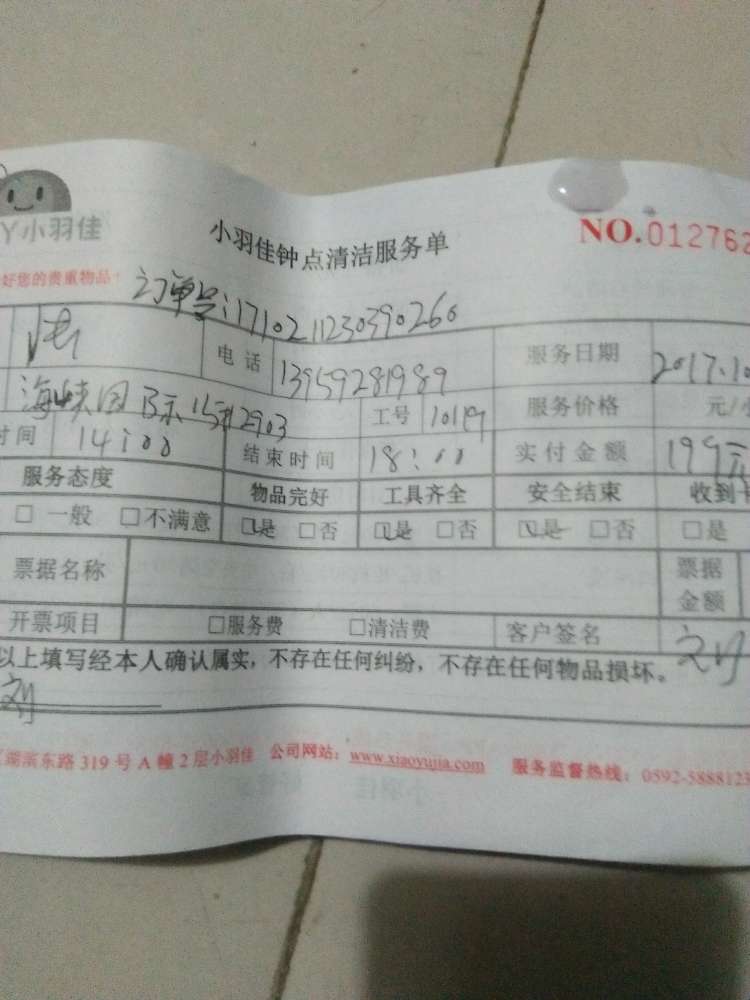 Y小羽佳
小羽佳钟点清洁服务单
NO.012762
好您的贵重物品!
订单号:1710211230390260
电话 13959281989 服务日期 2017.10
海峡国际15#2903 工号 10119 服务价格 元/
时间 14:00 结束时间 18:00 实付金额 199元
服务态度 物品完好 工具齐全 安全结束 收到
□一般 □不满意 □是 □否 □是 □否 □是 □否 □是
票据名称 票据金额
开票项目 □服务费 □清洁费 客户签名 刘
以上填写经本人确认属实，不存在任何纠纷，不存在任何物品损坏。
刘
湖滨东路 319 号 A 幢 2 层小羽佳 公司网站：www.xiaoyujia.com 服务监督热线：0592-5888123